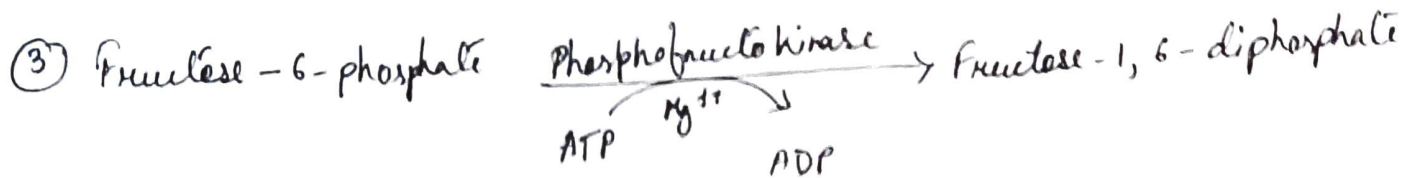 ③ Fructose - 6 - phosphate Phosphofructokinase → Fructose - 1, 6 - diphosphate
Mg++
ATP ADP